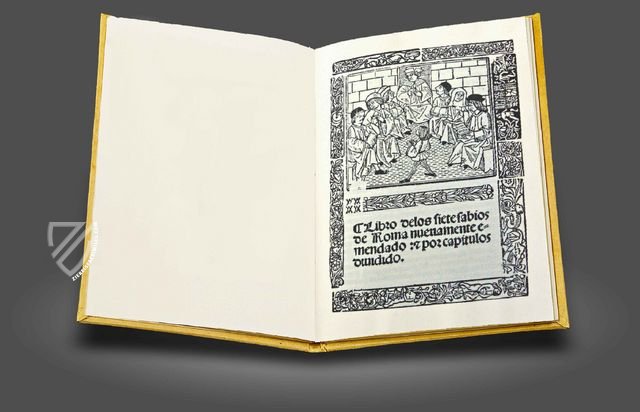 ¶Libro delos siete sabios
de Roma nueuamente e-
mendado ⁊ por capitulos
diuidido.